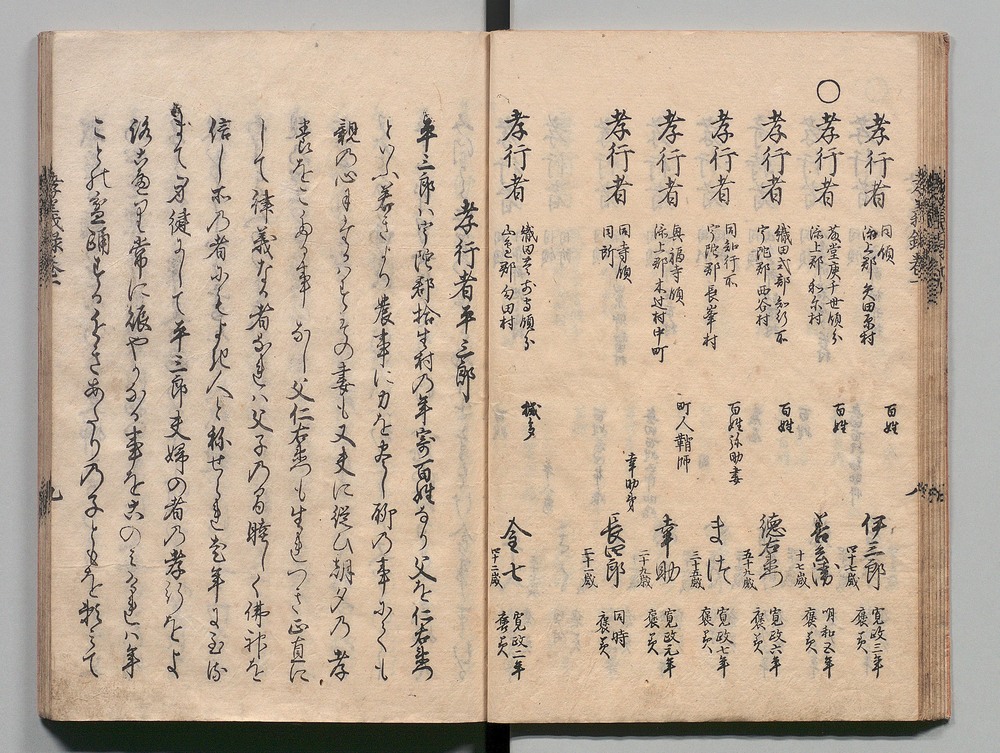 ○
孝行者 同領 添上郡矢田原村 百姓 伊三郎 四十七歳 寛政三年 褒美
孝行者 藤堂庚千世領分 添上郡和尓村 百姓 善兵衛 十七歳 明和五年 褒美
孝行者 織田式部知行所 宇陀郡西谷村 百姓 徳右衛門 五十九歳 寛政六年 褒美
孝行者 同知行所 宇陀郡長峯村 百姓弥助妻 まつ 三十五歳 寛政七年 褒美
孝行者 興福寺領 添上郡木辻村中町 町人鞘師 幸助 二十九歳 寛政元年 褒美
孝行者 同寺領 同所 幸助弟 長四郎 二十一歳 同時 褒美
孝行者 織田 領分 山邉郡勾田村 穢多 金七 四十二歳 寛政二年 褒美
孝行者平三郎
平三郎ハ宇陀郡拾生村の年寄百姓なり父を仁右衛門
といふ若きより農事に力を尽し聊の事にても
親の心にたかハすその妻も又夫に従ひ朝夕の孝
養をこたる事なし父仁右衛門も生れつき正直に
して律義なる者なれハ父子の間睦しく佛神を
信し所の者にもよき人と称せられ老年に至る
まて身健にして平三郎夫婦の者の孝行をよ
ろこひ常に賑やかなる事を このみけれハ年
ことの盆踊するをさあたりの子ともを頼みて
孝義録巻 九